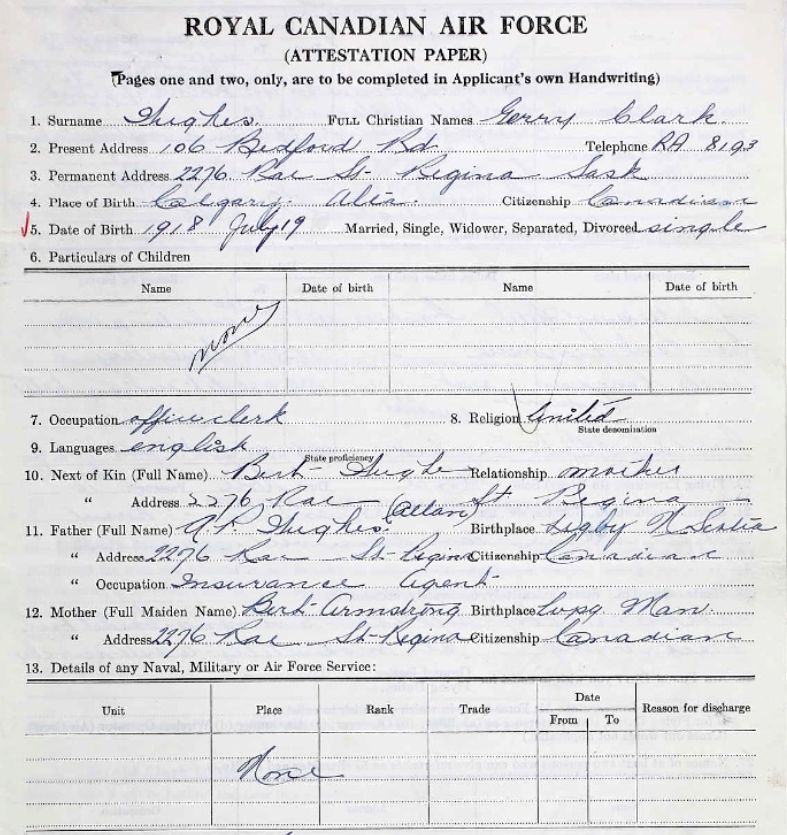 ROYAL CANADIAN AIR FORCE
(ATTESTATION PAPER)
(Pages one and two, only, are to be completed in Applicant's own Handwriting)
1. Surname Hughes. FULL Christian Names Gerry Clark.
2. Present Address 106 Bedford Rd Telephone RA 8193
3. Permanent Address 2276 Rae St- Regina Sask
4. Place of Birth Calgary. Alta. Citizenship Canadian
5. Date of Birth 1918 July 19 Married, Single, Widower, Separated, Divorced single
6. Particulars of Children
Name Date of birth Name Date of birth
none
7. Occupation office clerk 8. Religion United
State denomination
9. Languages english
State proficiency
10. Next of Kin (Full Name) Bert- Hughes Relationship mother
" Address 2276 Rae St. Regina
(Allan)
11. Father (Full Name) A.P. Hughes. Birthplace Digby N. Scotia
" Address 2276 Rae St-Regina Citizenship Canadian
" Occupation Insurance Agent-
12. Mother (Full Maiden Name) Bert- Armstrong Birthplace Wpg. Man.
" Address 2276 Rae St-Regina Citizenship Canadian
13. Details of any Naval, Military or Air Force Service:
Unit Place Rank Trade Date Reason for discharge
From To
None